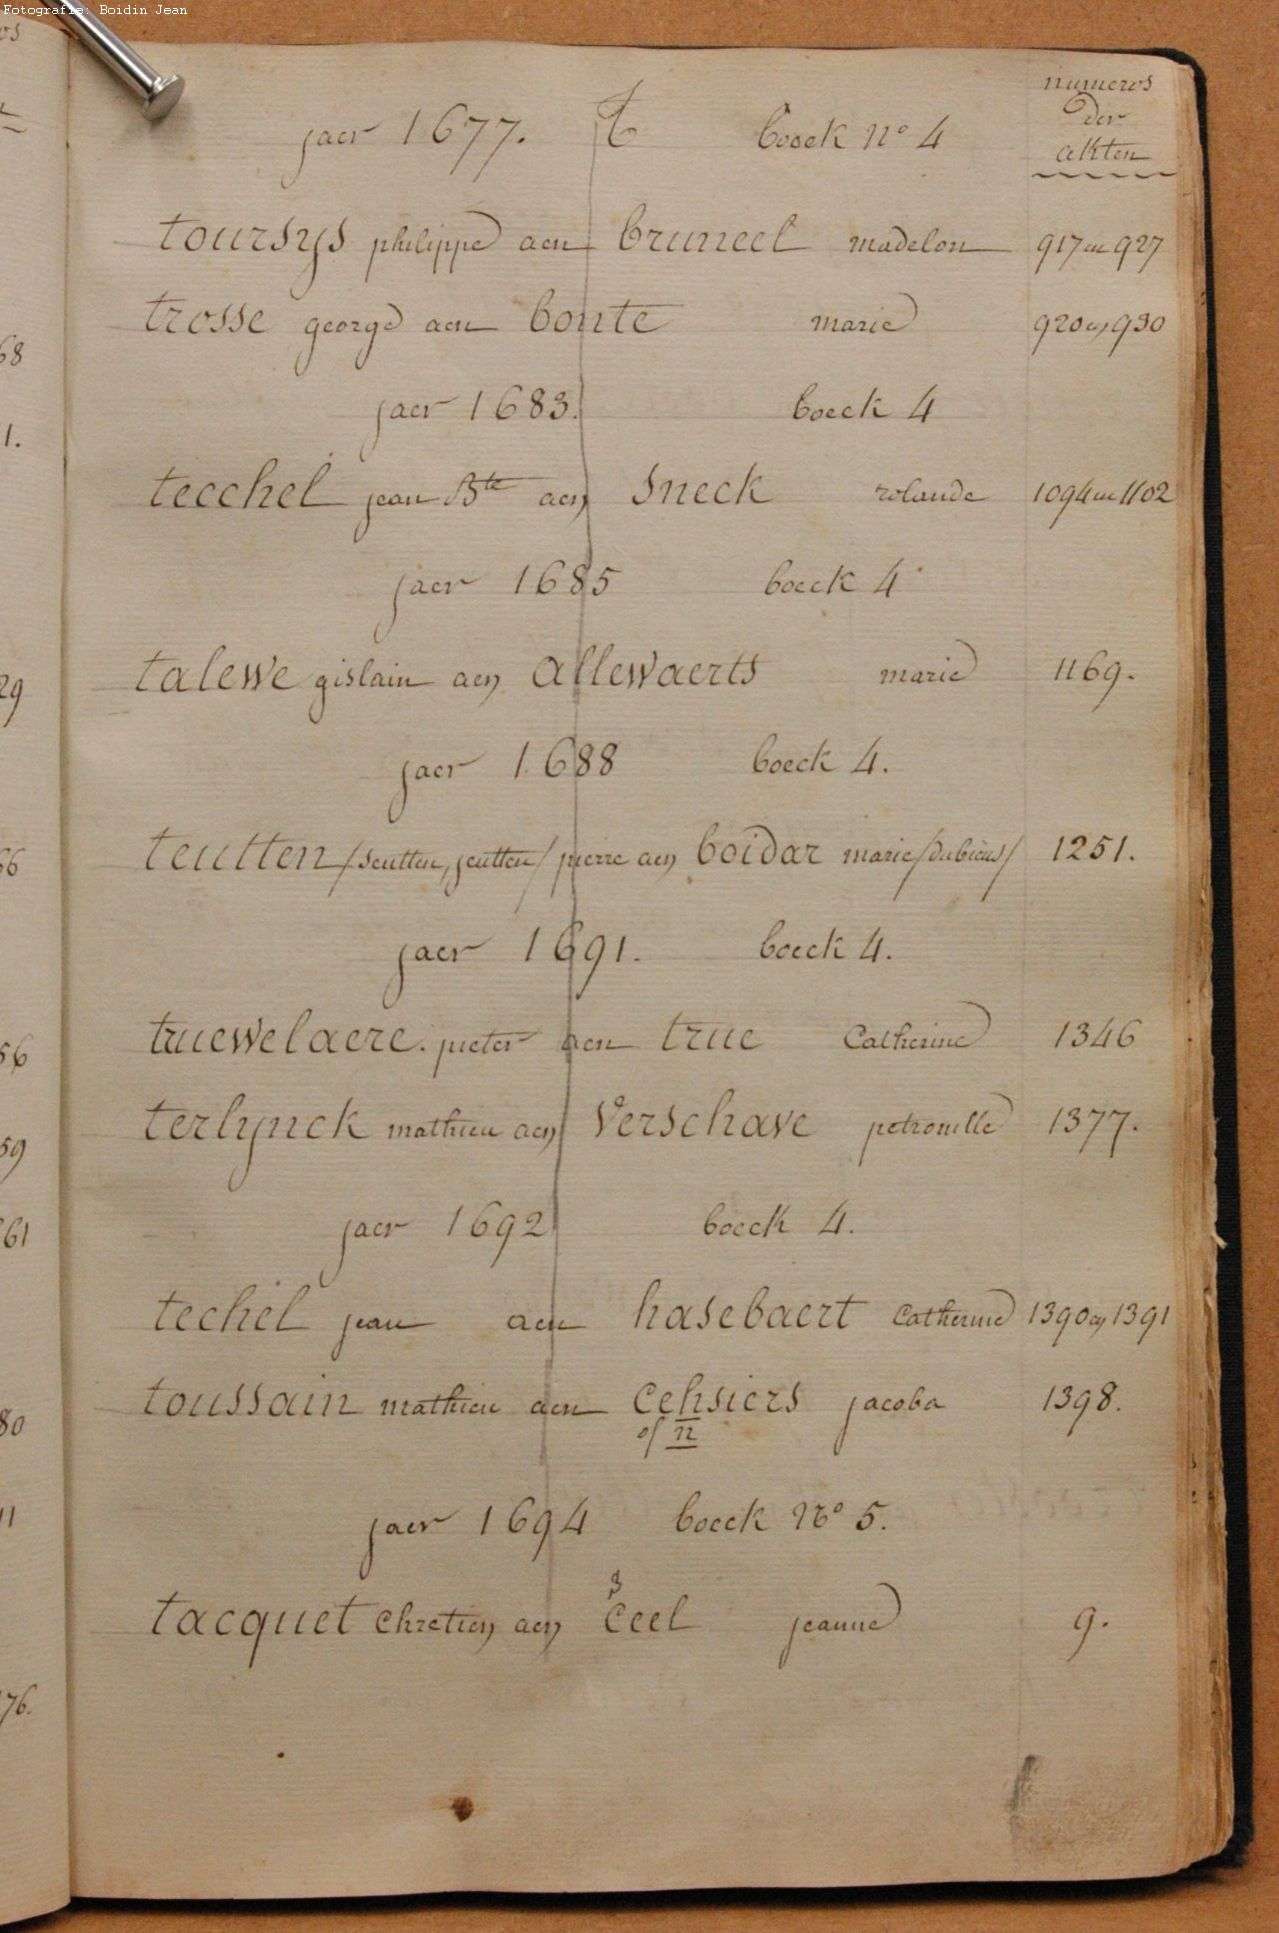 Fotografie: Boidin Jean
numeros
der
akten
jaer 1677. T boeck n° 4
toursys philippe aen bruneel madelon 917 en 927
trosse george aen bonte marie 920 en 930
jaer 1683. boeck 4
tecchel jean Bte aen sneck rolande 1094 en 1102
jaer 1685 boeck 4
talewe gislain aen allewaerts marie 1169.
jaer 1688 boeck 4.
teutten /seutten, jeutten/ pierre aen boidar marie /dubiçus/ 1251.
jaer 1691. boeck 4.
truewelaere. pieter aen true Catherine 1346
terlynck mathieu aen Verschave petronille 1377.
jaer 1692 boeck 4.
techel jean aen hasebaert Catherine 1390 en 1391
toussain mathieu aen Cehsiers jacoba 1398.
of n
jaer 1694 boeck N° 5.
s
tacquet Chretien aen Ceel jeanne 9.
68
1.
29
66
56
59
61
80
11
76.